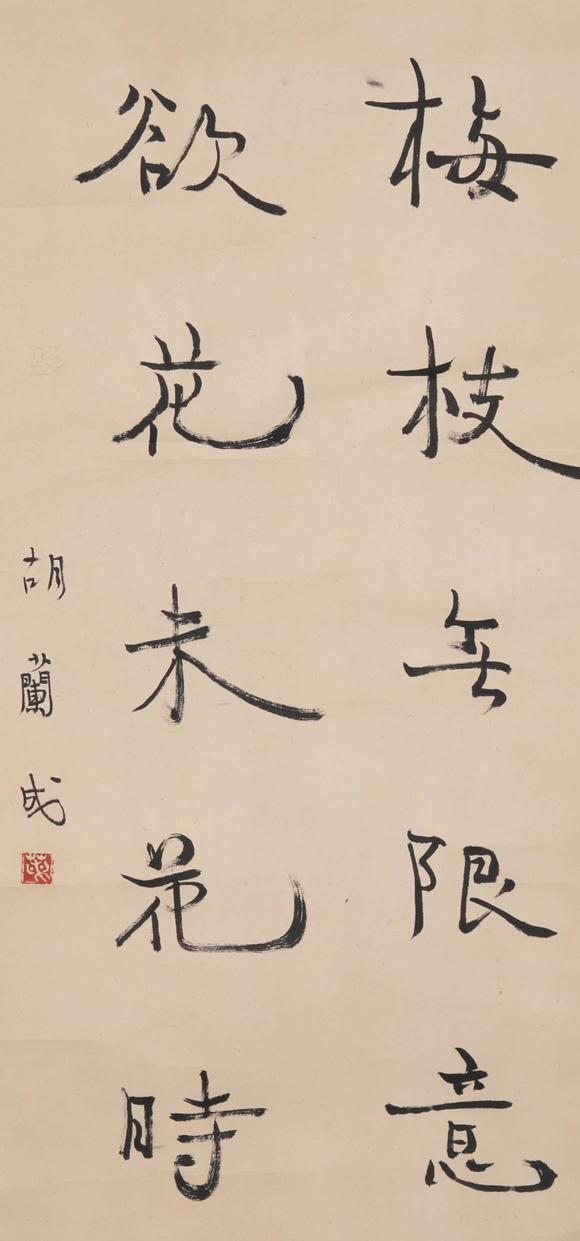 梅枝無限意
欲花未花時
胡蘭成